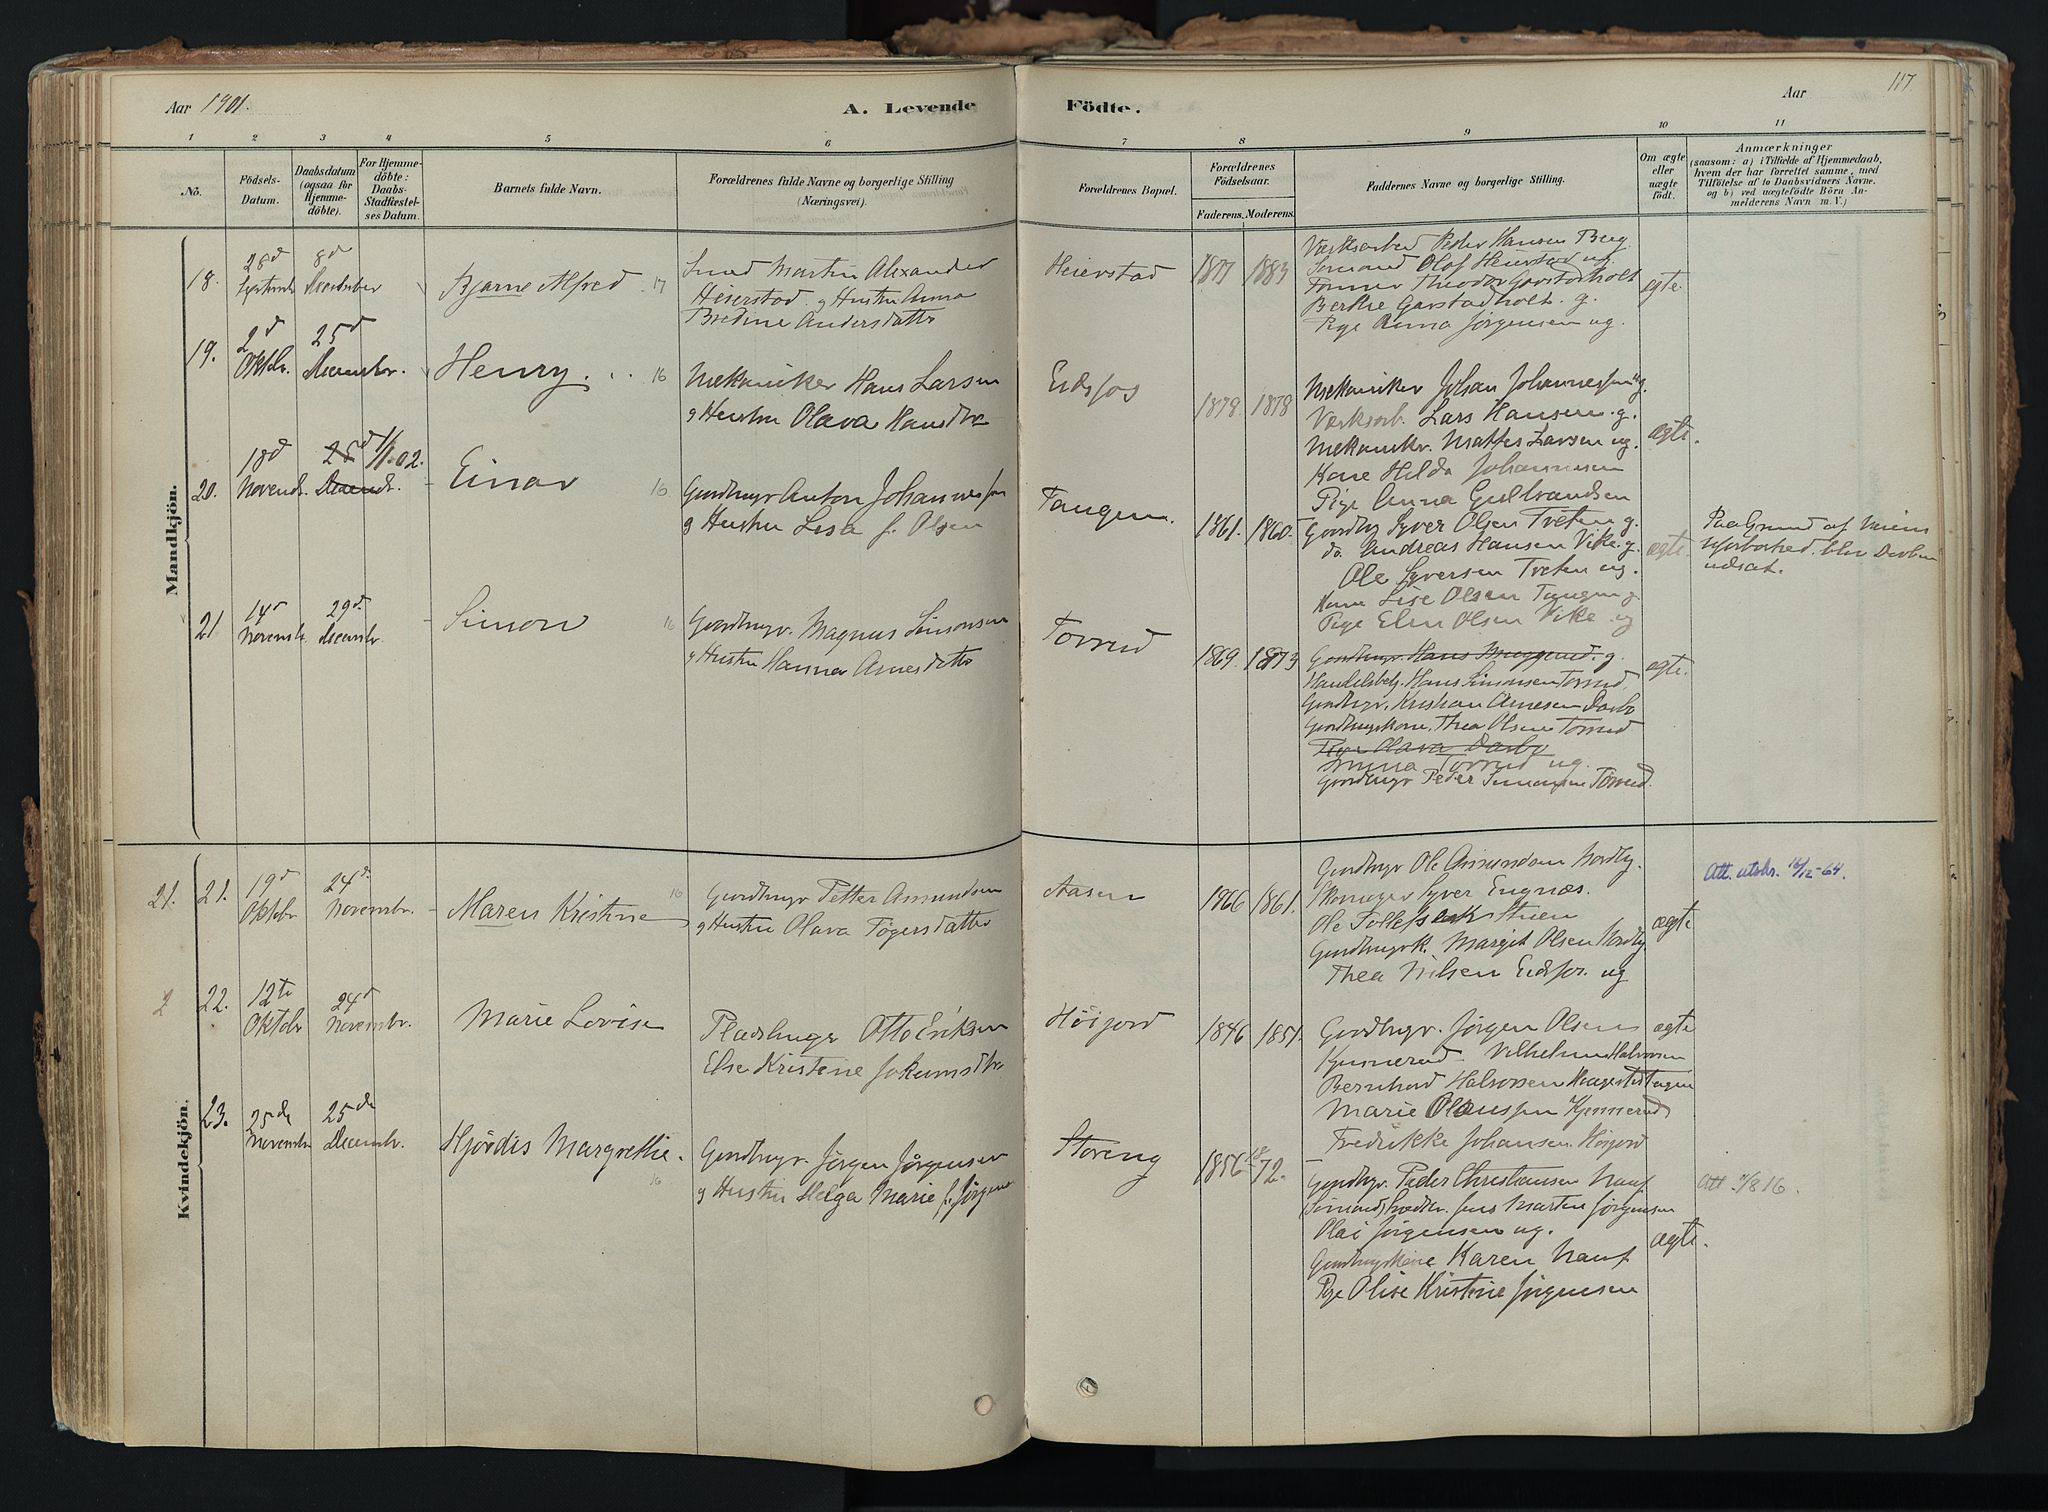 Aar 1901.
A. Levende
Födte.
Aar
117
1 2 3 4 5 6 7 8 9 10 11
No.
Födsels-
Datum.
Daabsdatum
(ogsaa for
Hjemme-
döbte).
For Hjemme-
döbte:
Daabs-
Stadfæstel-
ses Datum.
Barnets fulde Navn.
Forældrenes fulde Navne og borgerlige Stilling
(Næringsvei).
Forældrenes Bopæl.
Forældrenes
Födselsaar.
Faderens. Moderens.
Faddernes Navne og borgerlige Stilling.
Om ægte
eller
uægte
födt.
Anmærkninger
(saasom: a) i Tilfælde af Hjemmedaab,
hvem der har forrettet samme, med
Tilföielse af to Daabsvidners Navne.
og b) ved uægtefödte Börn An-
melderens Navn m. V.)
Mandkjön.
18.
28d
8d
Bjarne Alfred
17
Smed Martin Alexander
Heierstad og Hustru Anna
Bredine Andersdatter
Heierstad
1877
1883
Værksarbed Peder Hansen Berg
Sømand Olof Heierstad ug.
Theodor Gavstadholt
Berthe Gavstadholt. g.
Pige Anna Jørgensen ug.
ægte.
19.
2d
Oktbr.
25d
Decembr.
Henry.
16
Mekaniker Hans Larsen
og Hustru Olava Hansdtr
Eidsfos
1878.
1878
Mekaniker Johan Johannessen g.
Værksarb. Lars Hansen. g.
Mekanikr. Mathis Larsen ug.
Kone Hilda Johannesen
Pige Anna Gulbrandsen
ægte.
20.
18d
Novembr.
25d
Decembr.
1/1.02.
Einar
16
Gaardbrgr Anton Johannessen
og Hustru Lisa f. Olsen
Tangen.
1861.
1860.
Gaardbrg Syver Olsen Tveten g.
do. Andreas Hansen Vike. g.
Ole Syversen Tveten ug.
Kone Lise Olsen Tangen g
Pige Elen Olsen Vike ug
ægte.
Paa Grund af Veiens
Uforbarhed blev Daaben
udsat.
21
14d
Novembr.
29d.
Decembr.
Simon
16
Gaardbrgr. Magnus Simonsen
og Hustru Hanna Arnesdatter
Torrud
1869.
1873
Gaardbrgr. Hans Bruggerud. g.
Handelsbetj. Hans Simonsen Torrud.
Gaardbrgr. Kristian Arnesen Darbo
Gaardbrgkone. Thea Olsen Torrud
Pige Olava Darbo
Torrud ug.
Gaardbrgr Peder Simonsen Torrud.
ægte.
Kvindekjön.
21.
21.
19d
Oktobr
24d.
Novembr.
Maren Kristine
16
Gaardbrgr Petter Asmundsen
og Hustru Olava Tøgersdatter
Aasen
1866
1861.
Gaardbrgr Ole Asmundsen Nordby.
Skomager Syver Engnæs.
Ole Tollefsen Stuen
Gaardbrgrk. Margit Olsen Nordby
Thea Nilsen Eidsfos. ug
ægte
Att. utskr. 16/12-64.
2
22.
12te
Oktobr
24d
Novembr.
Marie Lovise
Pladsbruger Otto Eriksen
Else Kristine Jokumsdtr
Høijord
1846
1851.
Gaardbrgr. Jørgen Olsen
Kjennerud. Vilhelm Halvorsen
Bernhard Halvorsen
Marie Olaussen Kjennerud
Fredrikke Johansen. Høijord
ægte
23.
25de
Novembr
25de
Decembr.
Hjørdis Margrethe.
16
Gaardbrgr. Jørgen Jørgensen
og Hustru Helga Marie f. Jørgens
Storeng
1856
1872.
Gaardbgr. Peder Christiansen Nauf
Jens Martin Jørgensen
Olai Jørgensen ug.
Gaardbrgskone Karen Nauf
Pige Olise Kristine Jørgensen
ægte.
Att 7/8 16.